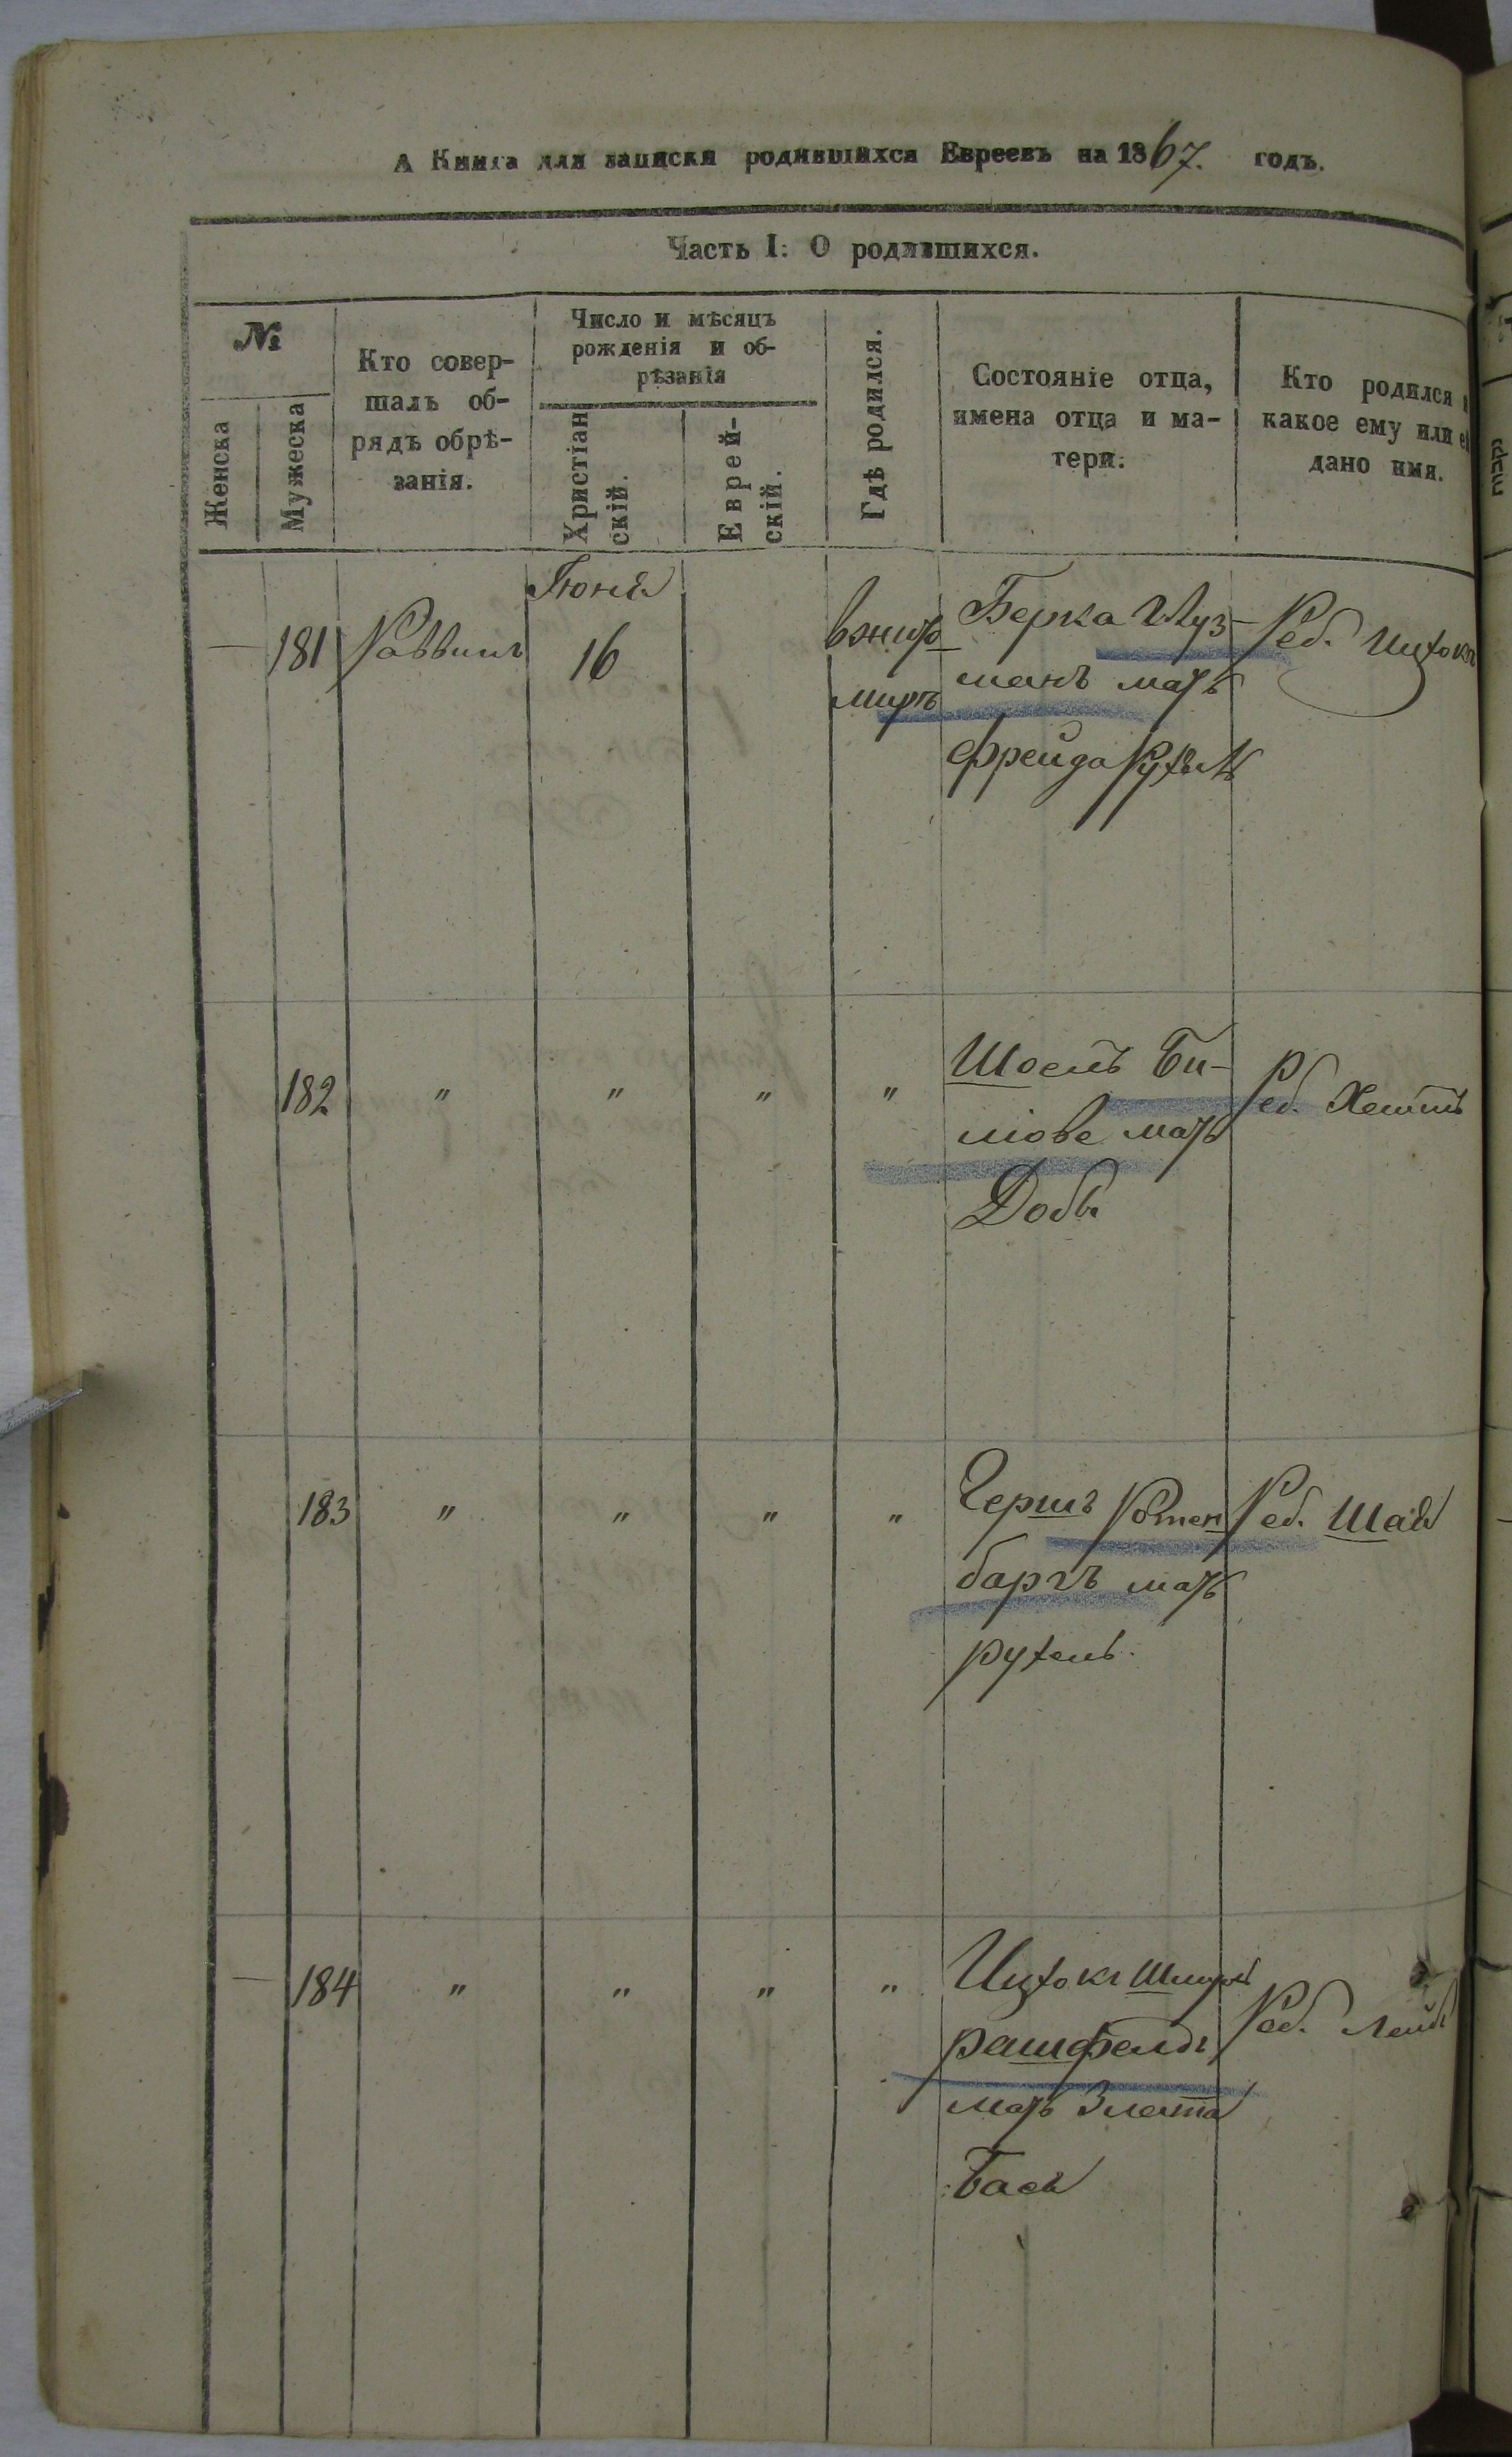 А Книга для записки родившихся Евреевъ на 1867. годъ.
Часть I: О родившихся.
№
Женска
Мужеска
Кто совер-
шалъ об-
рядъ обрѣ-
занія.
Число и мѣсяцъ
рожденія и об-
рѣзанія
Христіан
скій.
Еврей-
скій.
Гдѣ родился.
Состояніе отца,
имена отца и ма-
тери.
Кто родился
какое ему или
дано имя.
Іюня
— 181 Раввинъ 16 вжито
миръ
Берка
манъ мать
Фрейда
Реб. Ицхокъ
182 " " " "
Шоелъ Би-
мать
Доба
Реб.
183 " " " "
Гершъ Ротен
баргъ мать
рухель.
Реб. Шая
— 184 " " " "
Ицхокъ Шмуль
рашфелдъ
мать Злата
Бася
Реб. Лейба